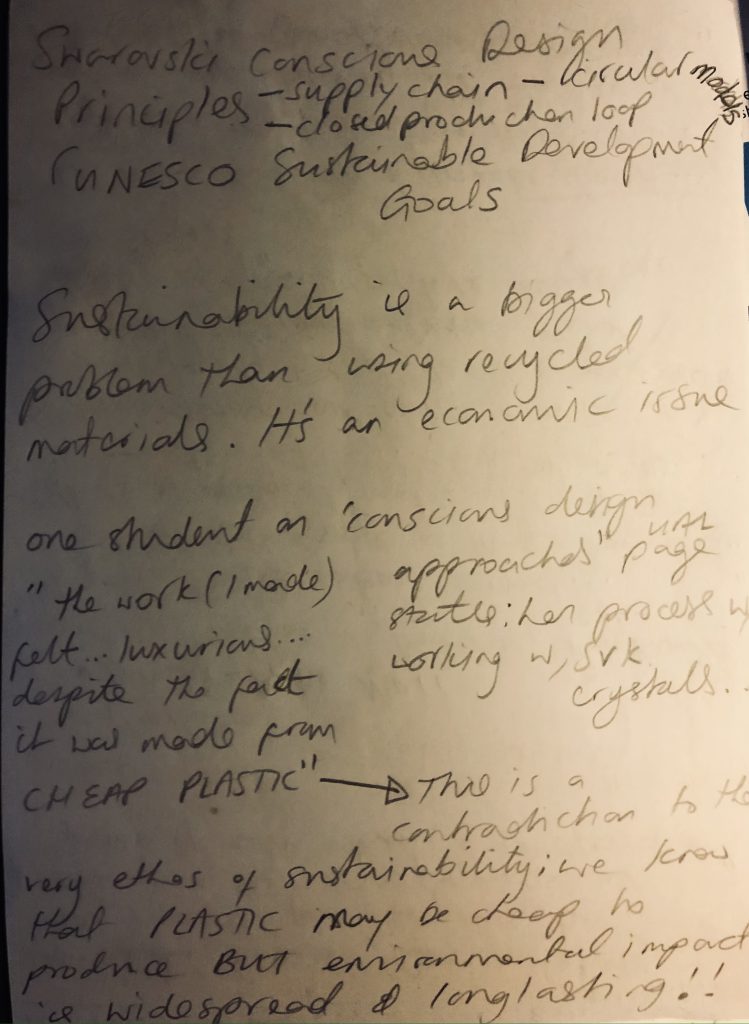 Swarovski Conscious Design
Principles - supply chain - circular models
- closed production loop
(UNESCO Sustainable Development
Goals
Sustainability is a bigger
problem than using recycled
materials. It's an economic issue
one student on 'conscious design
approaches" UAL page
"the work (I made)
felt... luxurious....
despite the fact
it was made from
CHEAP PLASTIC"
: her process w
working w, SVK
crystals..
→ This is a
contradiction to the
very ethos of sustainability; we know
that PLASTIC may be cheap to
produce BUT environmental impact
is widespread & longlasting!!